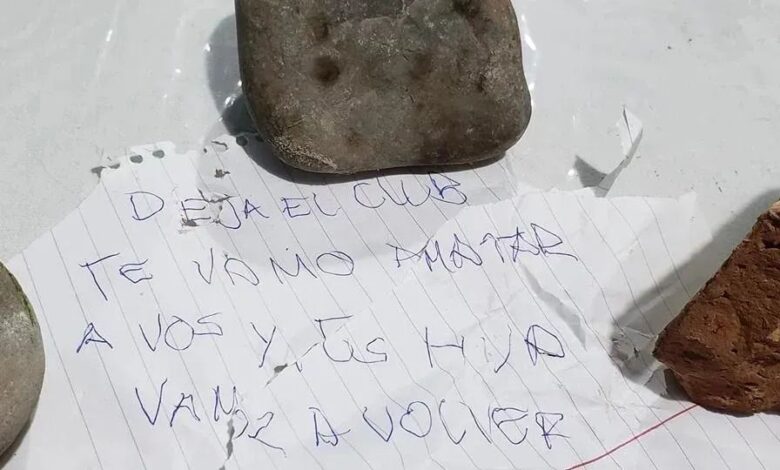 DEJA EL CLUB
TE VAMO AMATAR
A VOS Y TUS HIJA
VAMOS A VOLVER